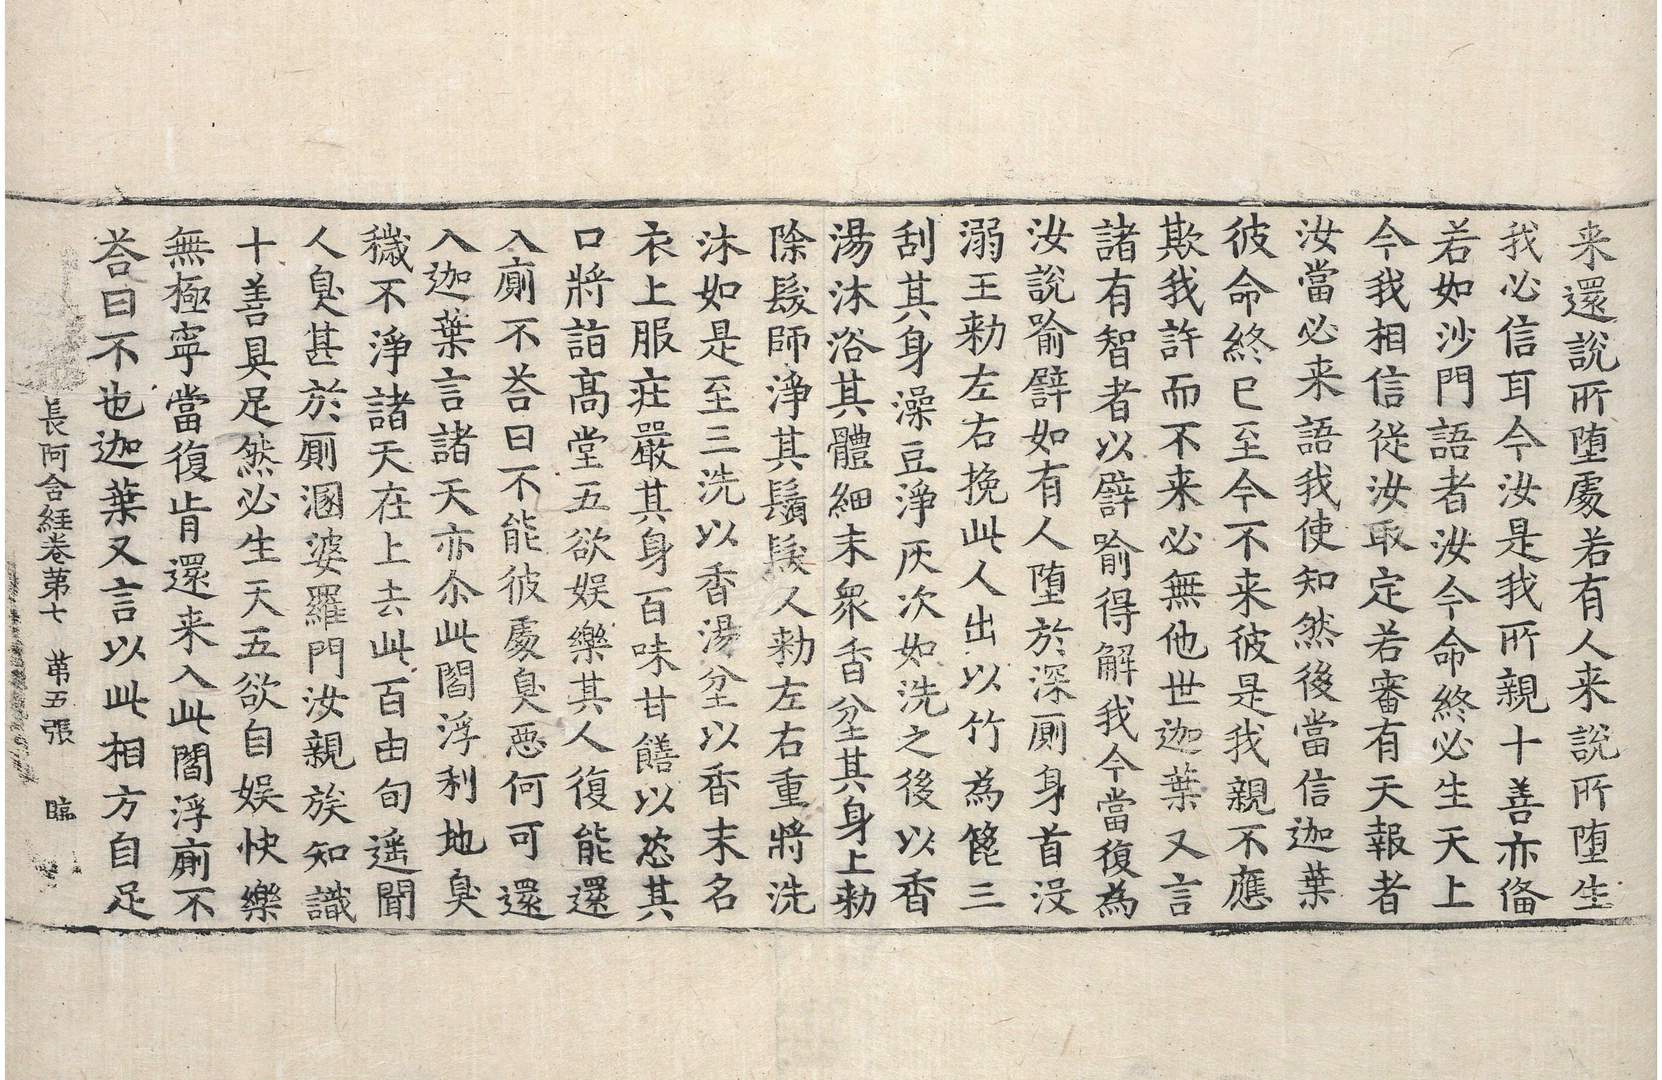 来還說所堕處若有人来說所堕生
我必信耳今汝是我所親十善亦俻
若如沙門語者汝今命終必生天上
今我相信從汝取定若審有天報者
汝當必来語我使知然後當信迦葉
彼命終已至今不来彼是我親不應
欺我許而不来必無他世迦葉又言
諸有智者以譬喻得解我今當復為
汝說喻譬如有人堕於深厠身首没
溺王勑左右挽此人出以竹為篦三
刮其身澡豆淨灰次如洗之後以香
湯沐浴其體細末衆香坌其身上勑
除髮師淨其鬚髮人勑左右重將洗
沐如是至三洗以香湯坌以香末名
衣上服莊嚴其身百味甘饍以恣其
口將詣高堂五欲娱樂其人復能還
入廁不荅曰不能彼處臭惡何可還
入迦葉言諸天亦尒此閻浮利地臭
穢不淨諸天在上去此百由旬遥聞
人臭甚於厠溷婆羅門汝親族知識
十善具足然必生天五欲自娱快樂
無極寧當復肯還来入此閻浮廁不
荅曰不也迦葉又言以此相方自足
長阿含經卷第七　第五張　臨